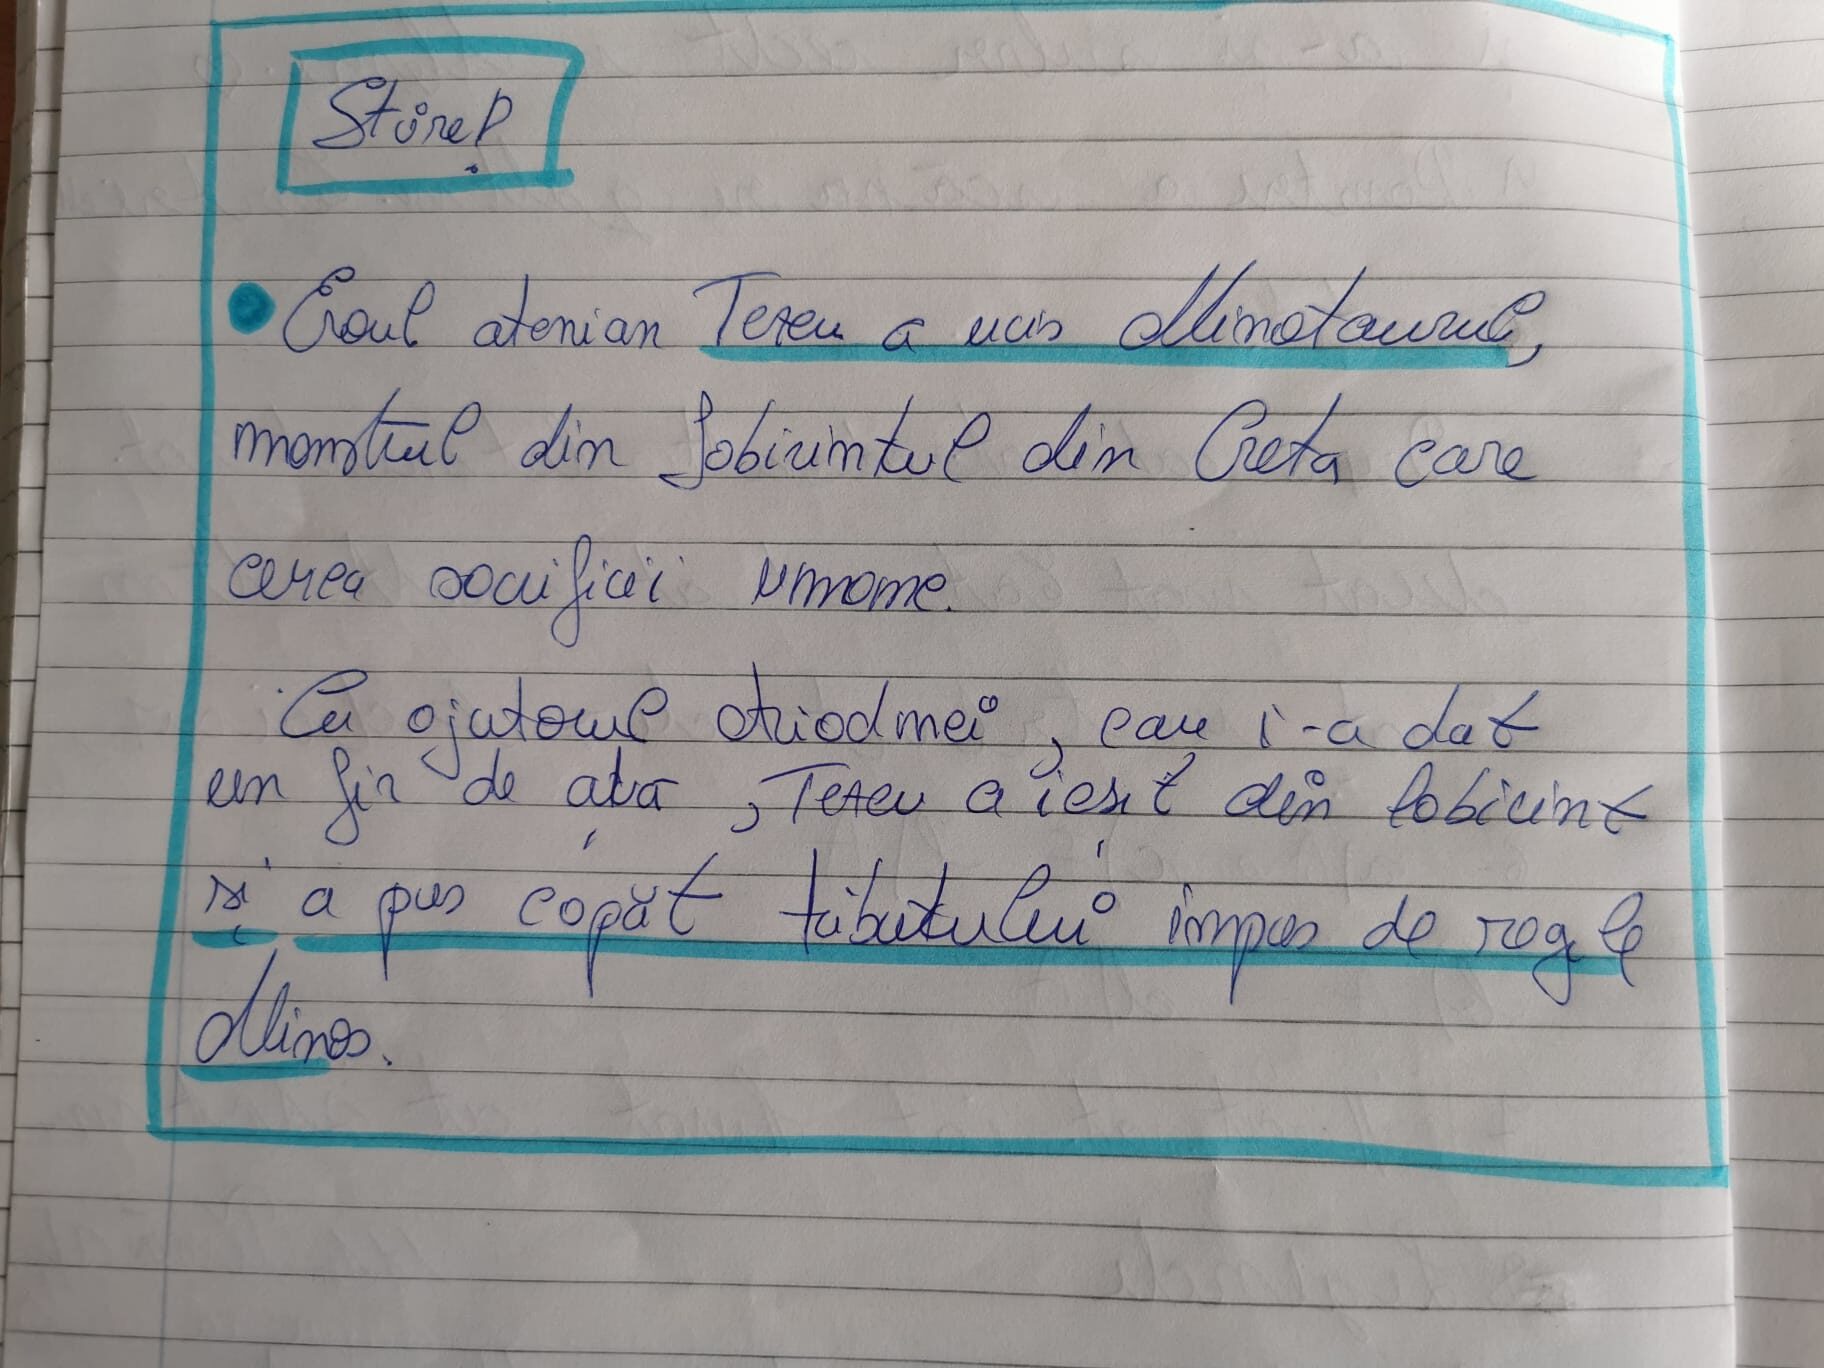 Știrel
Eroul atenian Tezeu a ucis Minotaurul,
monstrul din Labirintul din Creta care
cerea sacrificii umane.
Cu ajutorul Ariadnei, care i-a dat
un fir de ață, Tezeu a ieșit din labirint
și a pus capăt tributului impus de regele
Minos.